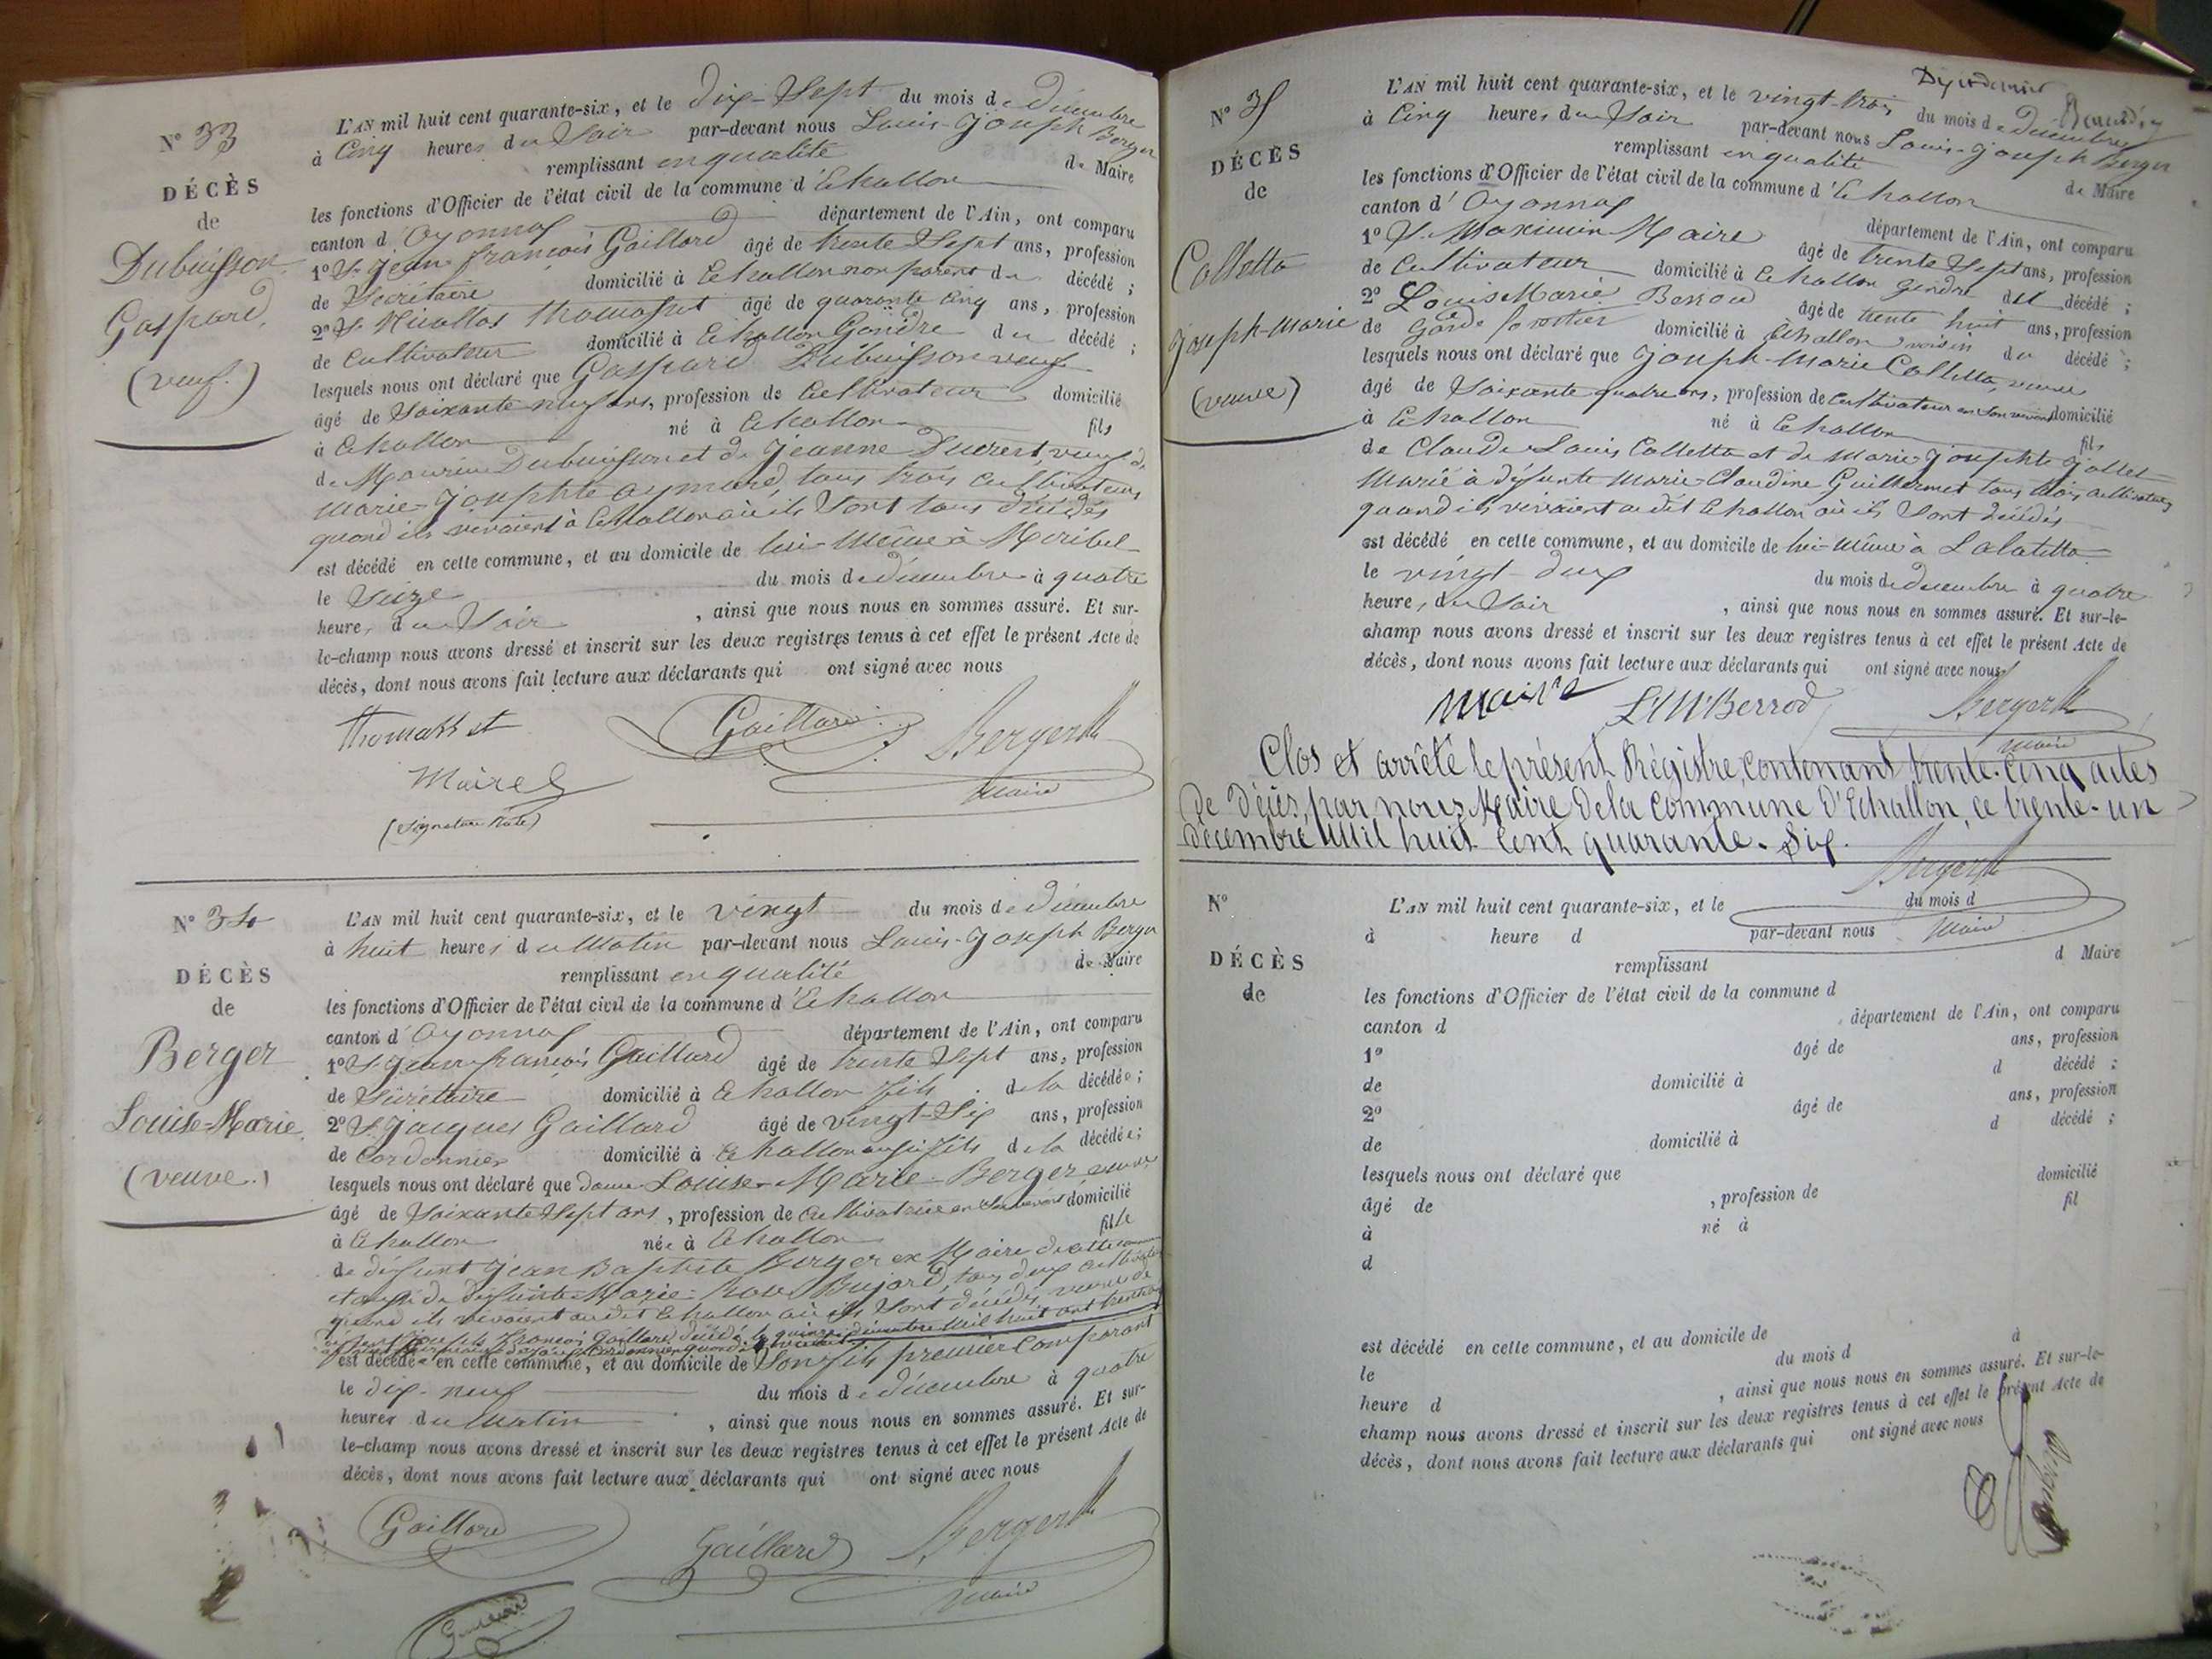 N° 33
DÉCÈS
de
Dubuisson
Gaspard,
(veuf.)
L'AN mil huit cent quarante-six, et le dix-Sept du mois de décembre
à Cinq heures du Soir par-devant nous Louis-Joseph Berger
remplissant en qualité de Maire
les fonctions d'Officier de l'état civil de la commune d'Echallon
canton d'Oyonnax département de l'Ain, ont comparu
1° Sr Jean François Gaillard âgé de trente Sept ans, profession
de Secrétaire domicilié à Echallon non parent du décédé ;
2° Sr Nicollas Thomasset âgé de quarante cinq ans, profession
de Cultivateur domicilié à Echallon Gendre du décédé ;
lesquels nous ont déclaré que Gaspard Dubuisson veuf
âgé de Soixante neuf ans, profession de Cultivateur domicilié
à Echallon né à Echallon fils
de Maurice Dubuisson et de Jeanne Ducrest, veuf de
Marie-Josephte Aymard, tous trois cultivateurs
quand ils vivaient à Echallon où ils Sont tous décédés
est décédé en cette commune, et au domicile de lui-même à Meribel
le Seize du mois de décembre à quatre
heures du Soir , ainsi que nous nous en sommes assuré. Et sur-
le-champ nous avons dressé et inscrit sur les deux registres tenus à cet effet le présent Acte de
décès, dont nous avons fait lecture aux déclarants qui ont signé avec nous
Thomasset Gaillard Berger
Maire
Mairel
N° 34
DÉCÈS
de
Berger
Louise-Marie,
(veuve.)
L'AN mil huit cent quarante-six, et le vingt du mois de décembre
à huit heures du Matin par-devant nous Louis-Joseph Berger
remplissant en qualité de Maire
les fonctions d'Officier de l'état civil de la commune d'Echallon
canton d'Oyonnax département de l'Ain, ont comparu
1° Sr Jean françois Gaillard âgé de trente Sept ans, profession
de Secrétaire domicilié à Echallon fils de la décédée ;
2° Sr Jacques Gaillard âgé de vingt-Six ans, profession
de Cordonnier domicilié à Echallon aussi fils de la décédée ;
lesquels nous ont déclaré que dame Louise-Marie Berger, veuve
âgé de Soixante Sept ans, profession de Cultivatrice en Son vivant domicilié
à Echallon née à Echallon fille
de défunt Jean Baptiste Berger ex Maire de cette commune
et aussi de défunte Marie-Rose Bujard, tous deux cultivateurs
quand ils vivaient au dit Echallon où ils Sont décédés, veuve de
Joseph François Gaillard décédé le quinze décembre Mil huit cent
est décédée en cette commune, et au domicile de Son fils premier Comparant
le dix-neuf du mois de décembre à quatre
heures du Matin , ainsi que nous nous en sommes assuré. Et sur-
le-champ nous avons dressé et inscrit sur les deux registres tenus à cet effet le présent Acte de
décès, dont nous avons fait lecture aux déclarants qui ont signé avec nous
Gaillard Gaillard Berger
Maire
N° 35
DÉCÈS
de
Colletta
Joseph-Marie
(veuve)
L'AN mil huit cent quarante-six, et le vingt-trois du mois de décembre
à Cinq heures du Soir par-devant nous Louis-Joseph Berger
remplissant en qualité de Maire
les fonctions d'Officier de l'état civil de la commune d'Echallon
canton d'Oyonnax département de l'Ain, ont comparu
1° Sr Maximin Maire âgé de trente Sept ans, profession
de Cultivateur domicilié à Echallon gendre du décédé ;
2° Louis Marie Berrod âgé de trente huit ans, profession
de Garde forestier domicilié à Echallon voisin du décédé ;
lesquels nous ont déclaré que Joseph-Marie Colletta, veuve
âgé de Soixante quatre ans, profession de Cultivateur en Son vivant domicilié
à Echallon né à Echallon fils
de Claude Louis Colletta et de Marie-Josephte Gollet
Marié à défunte Marie-Claudine Guillermet tous trois cultivateurs
quand ils vivaient au dit Echallon où ils Sont décédés
est décédé en cette commune, et au domicile de lui-même à Lalatetta
le vingt-deux du mois de décembre à quatre
heures du Soir , ainsi que nous nous en sommes assuré. Et sur-le-
champ nous avons dressé et inscrit sur les deux registres tenus à cet effet le présent Acte de
décès, dont nous avons fait lecture aux déclarants qui ont signé avec nous
Maire L M Berrod Berger
Maire
Clos et arrêté le présent Régistre, contenant trente-cinq actes
de décès, par nous Maire de la commune d'Echallon, ce trente-un
décembre Mil huit Cent quarante-Six.
Berger
Maire
N°
DÉCÈS
de
L'AN mil huit cent quarante-six, et le du mois d
à heure d par-devant nous
remplissant d Maire
les fonctions d'Officier de l'état civil de la commune d
canton d département de l'Ain, ont comparu
1° âgé de ans, profession
de domicilié à d décédé ;
2° âgé de ans, profession
de domicilié à d décédé ;
lesquels nous ont déclaré que
âgé de , profession de domicilié
à né à fil
d
est décédé en cette commune, et au domicile de
le du mois d à
heure d , ainsi que nous nous en sommes assuré. Et sur-le-
champ nous avons dressé et inscrit sur les deux registres tenus à cet effet le présent Acte de
décès, dont nous avons fait lecture aux déclarants qui ont signé avec nous